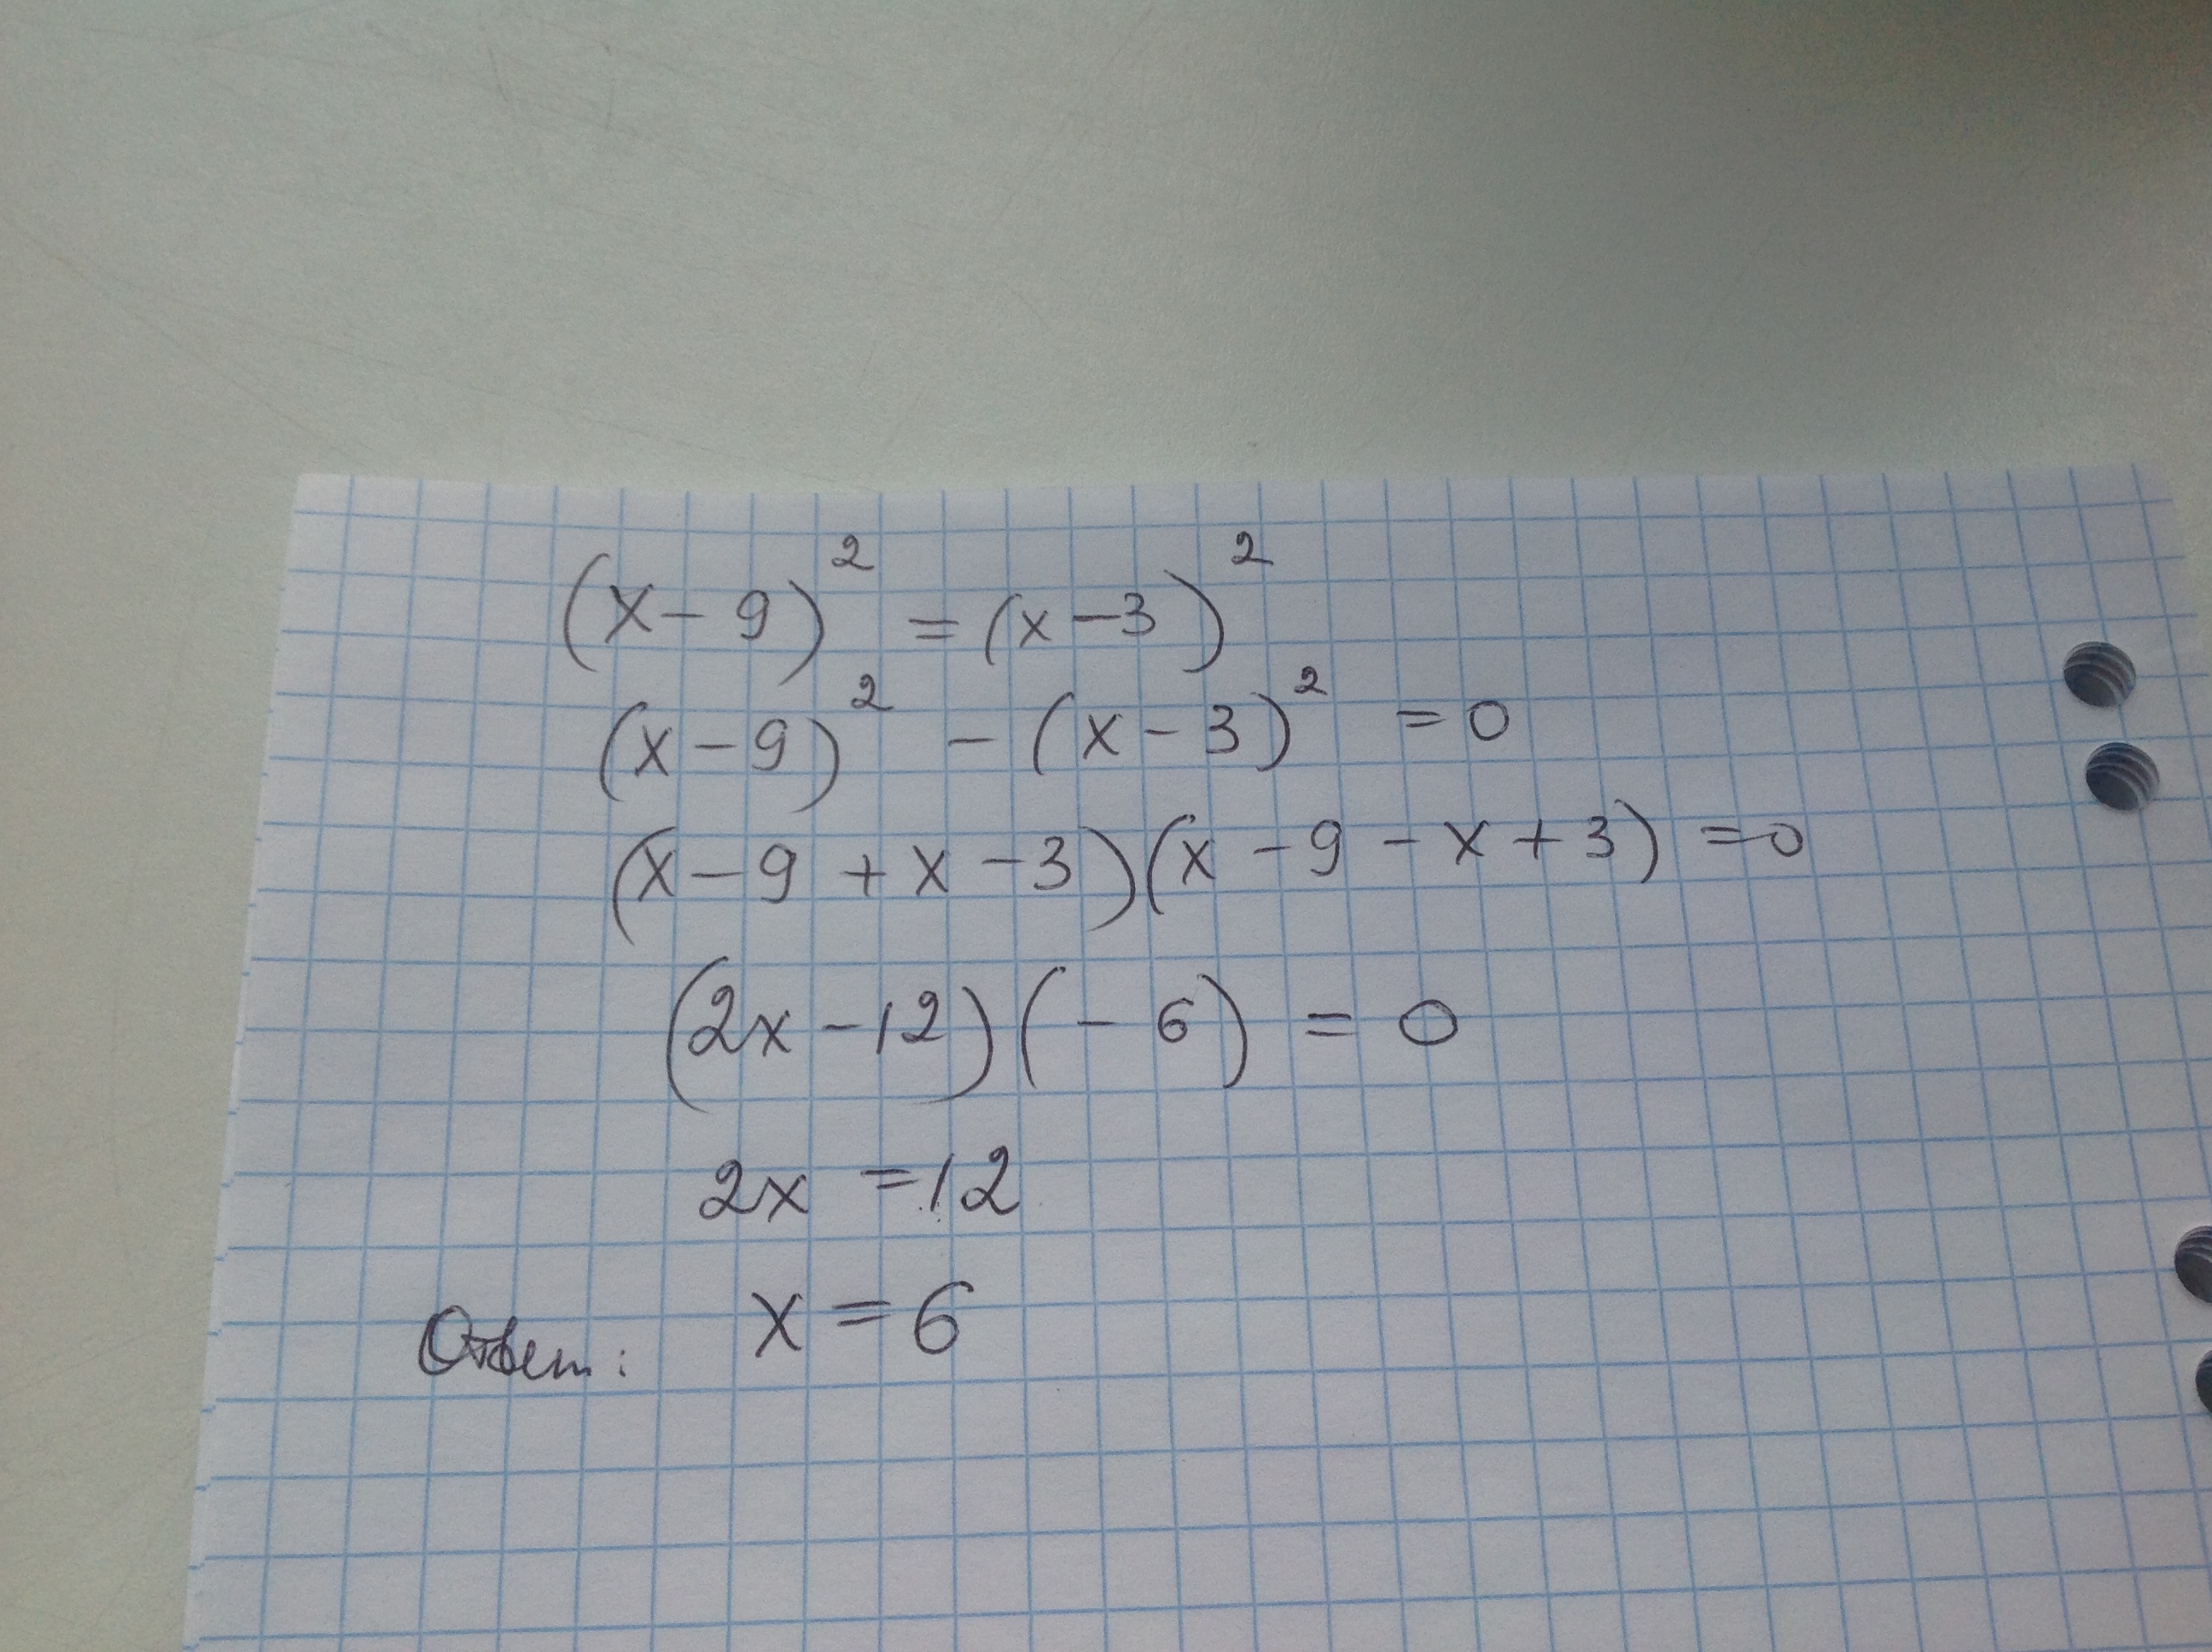 (x-9)² = (x-3)²
(x-9)² - (x-3)² = 0
(x-9+x-3)(x-9-x+3) = 0
(2x-12)(-6) = 0
2x = 12
Ответ: x = 6